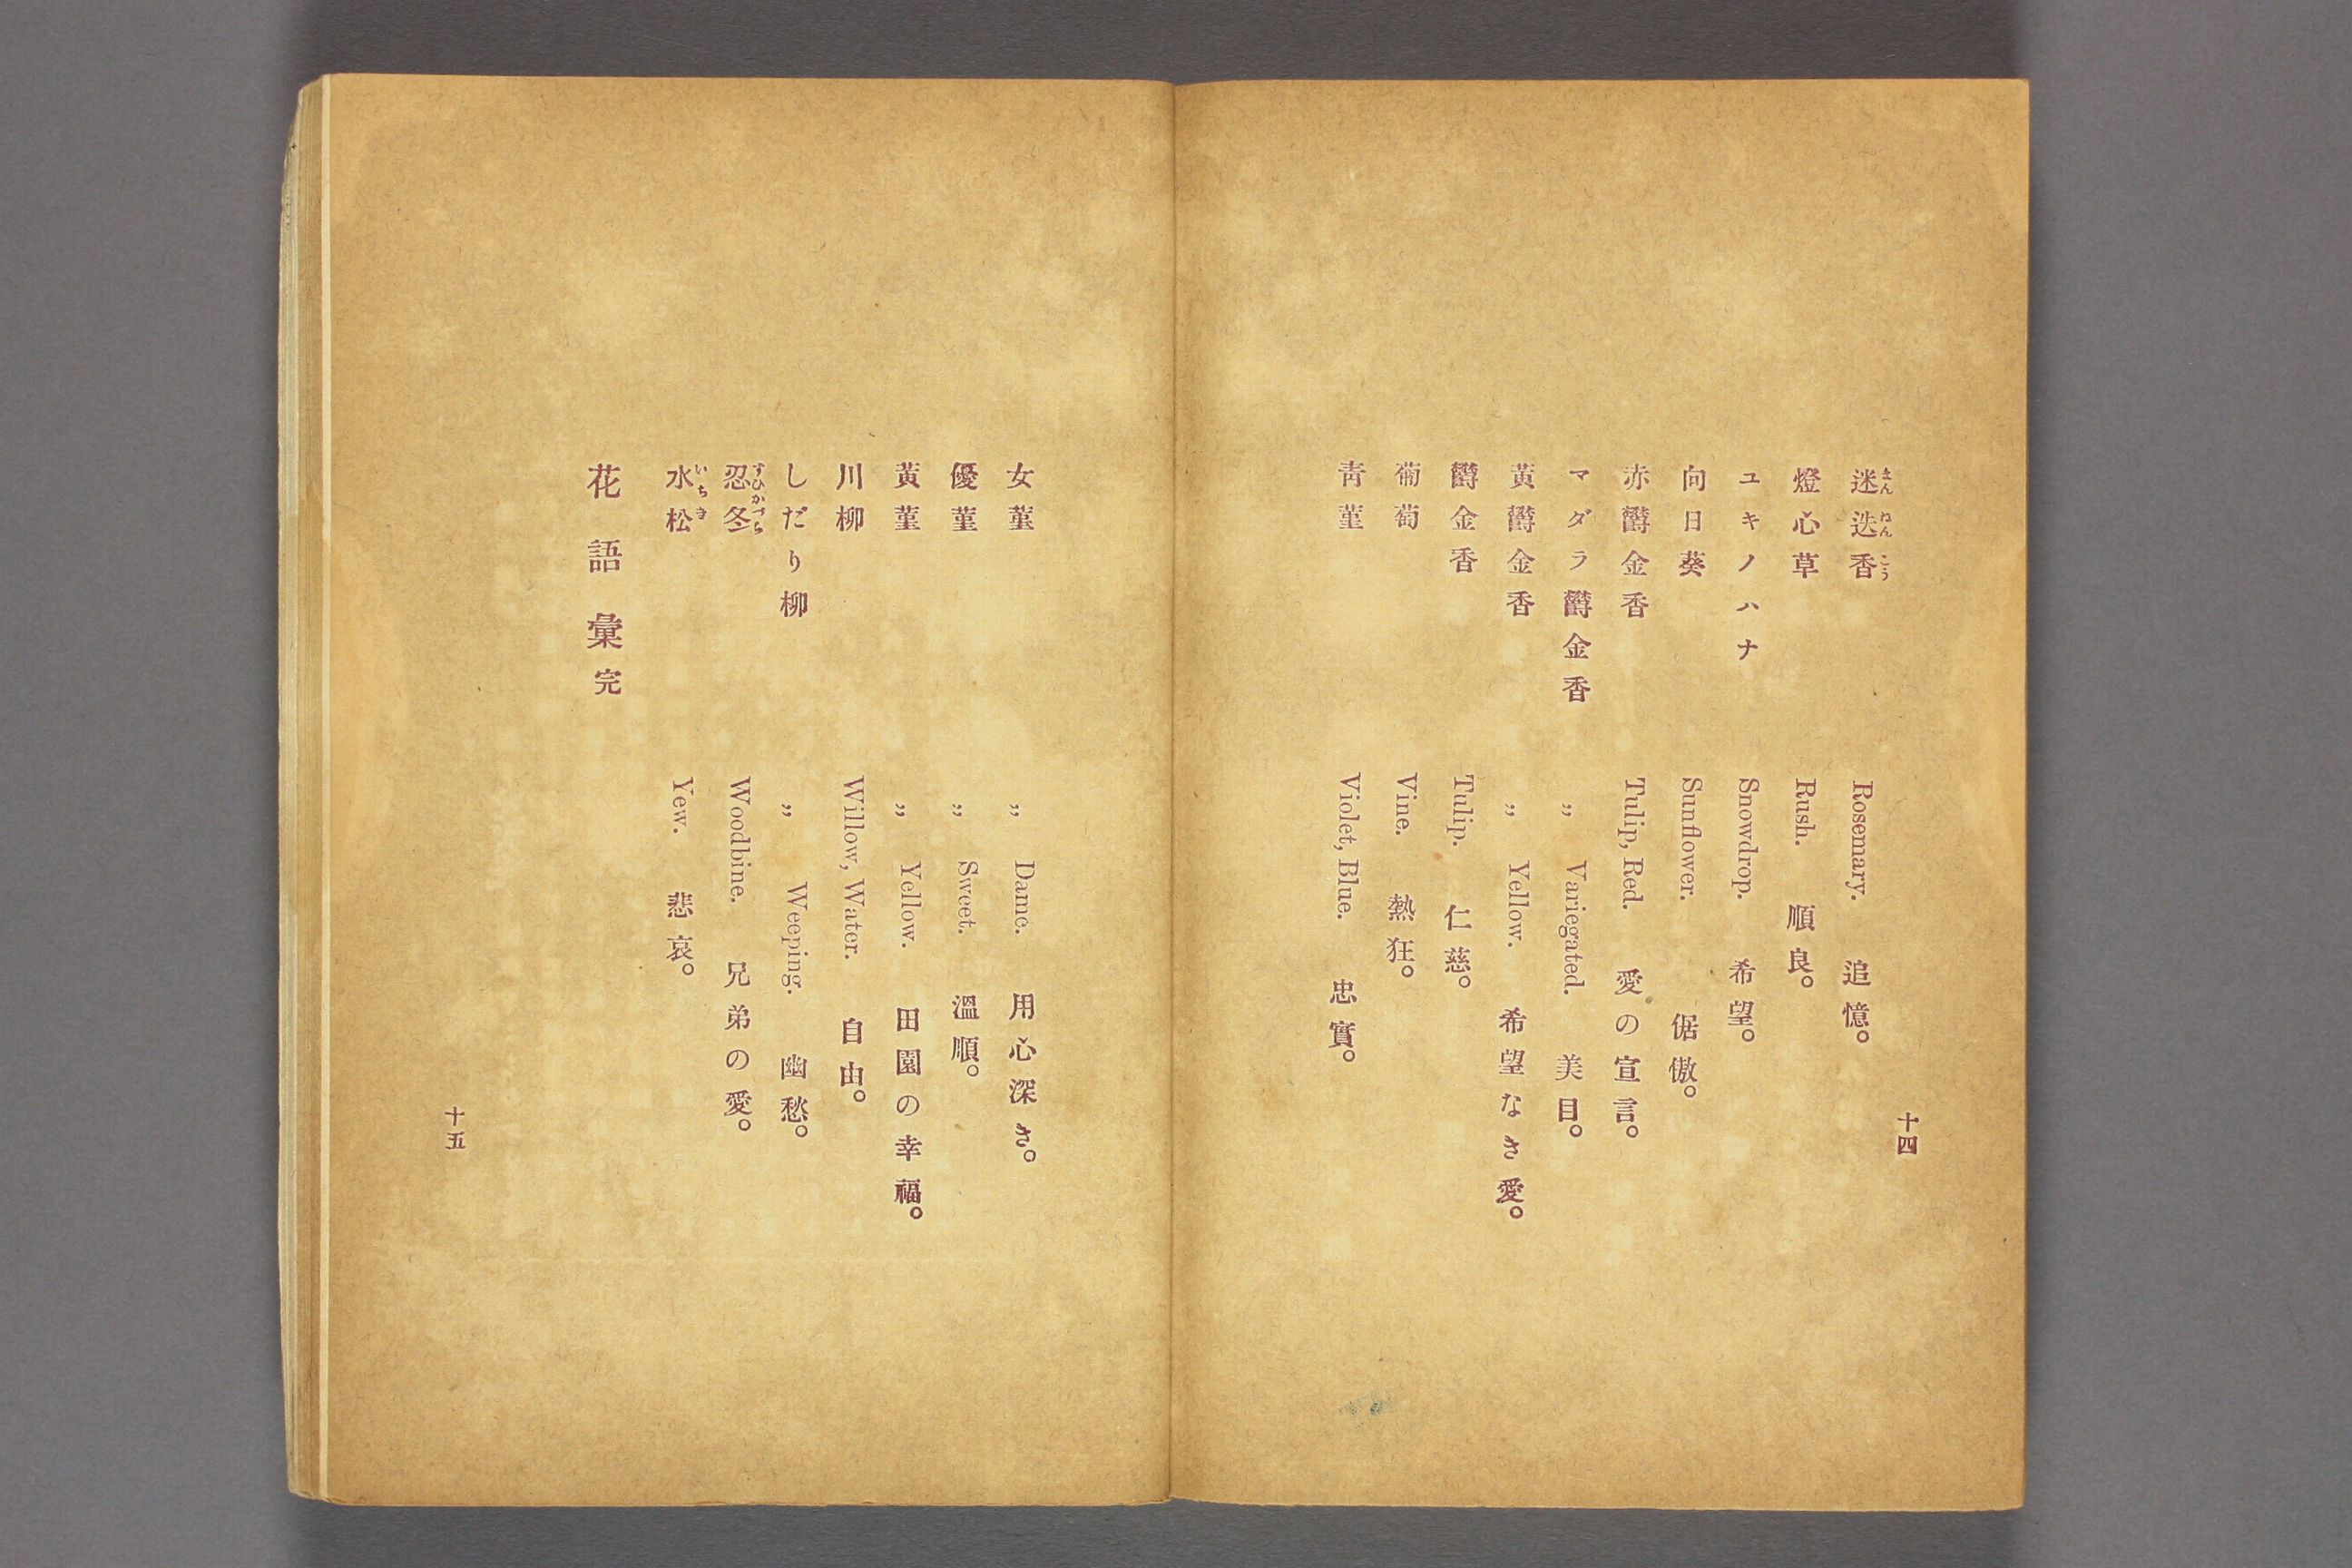 迷迭香 Rosemary. 追憶。
燈心草 Rush. 順良。
ユキノハナ Snowdrop. 希望。
向日葵 Sunflower. 倨傲。
赤欝金香 Tulip, Red. 愛の宣言。
マダラ欝金香 〃 Variegated. 美目。
黃欝金香 〃 Yellow. 希望なき愛。
欝金香 Tulip. 仁慈。
葡萄 Vine. 熱狂。
靑菫 Violet, Blue. 忠實。
十四
女菫 〃 Dame. 用心深き。
優菫 〃 Sweet. 溫順。
黃菫 〃 Yellow. 田園の幸福。
川柳 Willow, Water. 自由。
しだり柳 〃 Weeping. 幽愁。
忍冬 Woodbine. 兄弟の愛。
水松 Yew. 悲哀。
花語彙完
十五